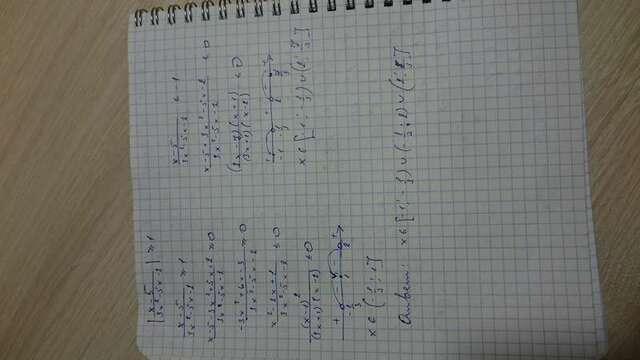 |x-5 / 3x²-5x-2| ≥ 1
x-5 / 3x²-5x-2 ≥ 1
x-5-3x²+5x+2 / 3x²-5x-2 ≥ 0
-3x²+6x-3 / 3x²-5x-2 ≥ 0
x²-2x+1 / 3x²-5x-2 ≤ 0
(x-1)² / (3x+1)(x-2) ≤ 0
+ - - +
-1/3 1 2
x-5 / 3x²-5x-2 ≤ -1
x-5+3x²-5x-2 / 3x²-5x-2 ≤ 0
(3x-7)(x+1) / (3x+1)(x-2) ≤ 0
-1 -1/3 2 7/3
x∈[-1; -1/3) ∪ (2; 7/3]
Ответ: x∈[-1; -1/3) ∪ (-1/3; 2) ∪ (2; 7/3]